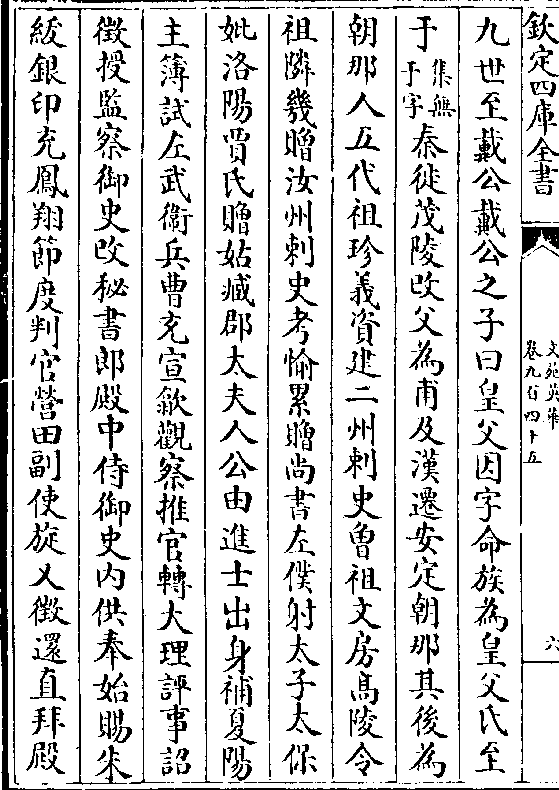 欽定四庫全書
文苑英華
卷九百四十五
六
九世至戴公戴公之子曰皇父因字命族為皇父氏至
于集無于字秦徙茂陵改父為甫及漢遷安定朝那其後為
朝那人五代祖珍義資建二州刺史曾祖文房高陵令
祖隣幾贈汝州刺史考愉累贈尚書左僕射太子太保
妣洛陽賈氏贈姑臧郡太夫人公由進士出身補夏陽
主簿試左武衛兵曹充宣歙觀察推官轉大理評事詔
徵授監察御史改秘書郎殿中侍御史内供奉始賜朱
紱銀印充鳳翔節度判官營田副使旋又徵還直拜殿